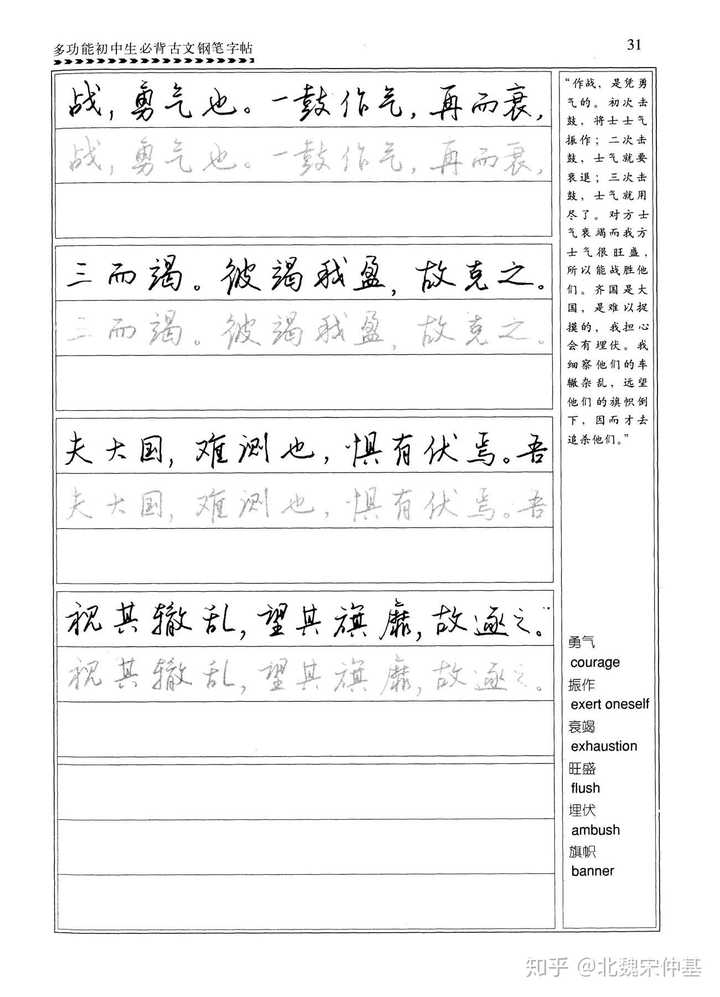 多功能初中生必背古文钢笔字帖
31
战，勇气也。一鼓作气，再而衰，
战，勇气也。一鼓作气，再而衰，
三而竭。彼竭我盈，故克之。
三而竭。彼竭我盈，故克之。
夫大国，难测也，惧有伏焉。吾
夫大国，难测也，惧有伏焉。吾
视其辙乱，望其旗靡，故逐之。
视其辙乱，望其旗靡，故逐之。
“作战，是凭勇
气的。初次击
鼓，将士士气
振作；二次击
鼓，士气就要
衰退；三次击
鼓，士气就用
尽了。对方士
气衰竭而我方
士气很旺盛，
所以能战胜他
们。齐国是大
国，是难以捉
摸的，我担心
会有埋伏。我
细察他们的车
辙杂乱，远望
他们的旗帜倒
下，因而才去
追杀他们。”
勇气
courage
振作
exert oneself
衰竭
exhaustion
旺盛
flush
埋伏
ambush
旗帜
banner
知乎 @北魏宋仲基